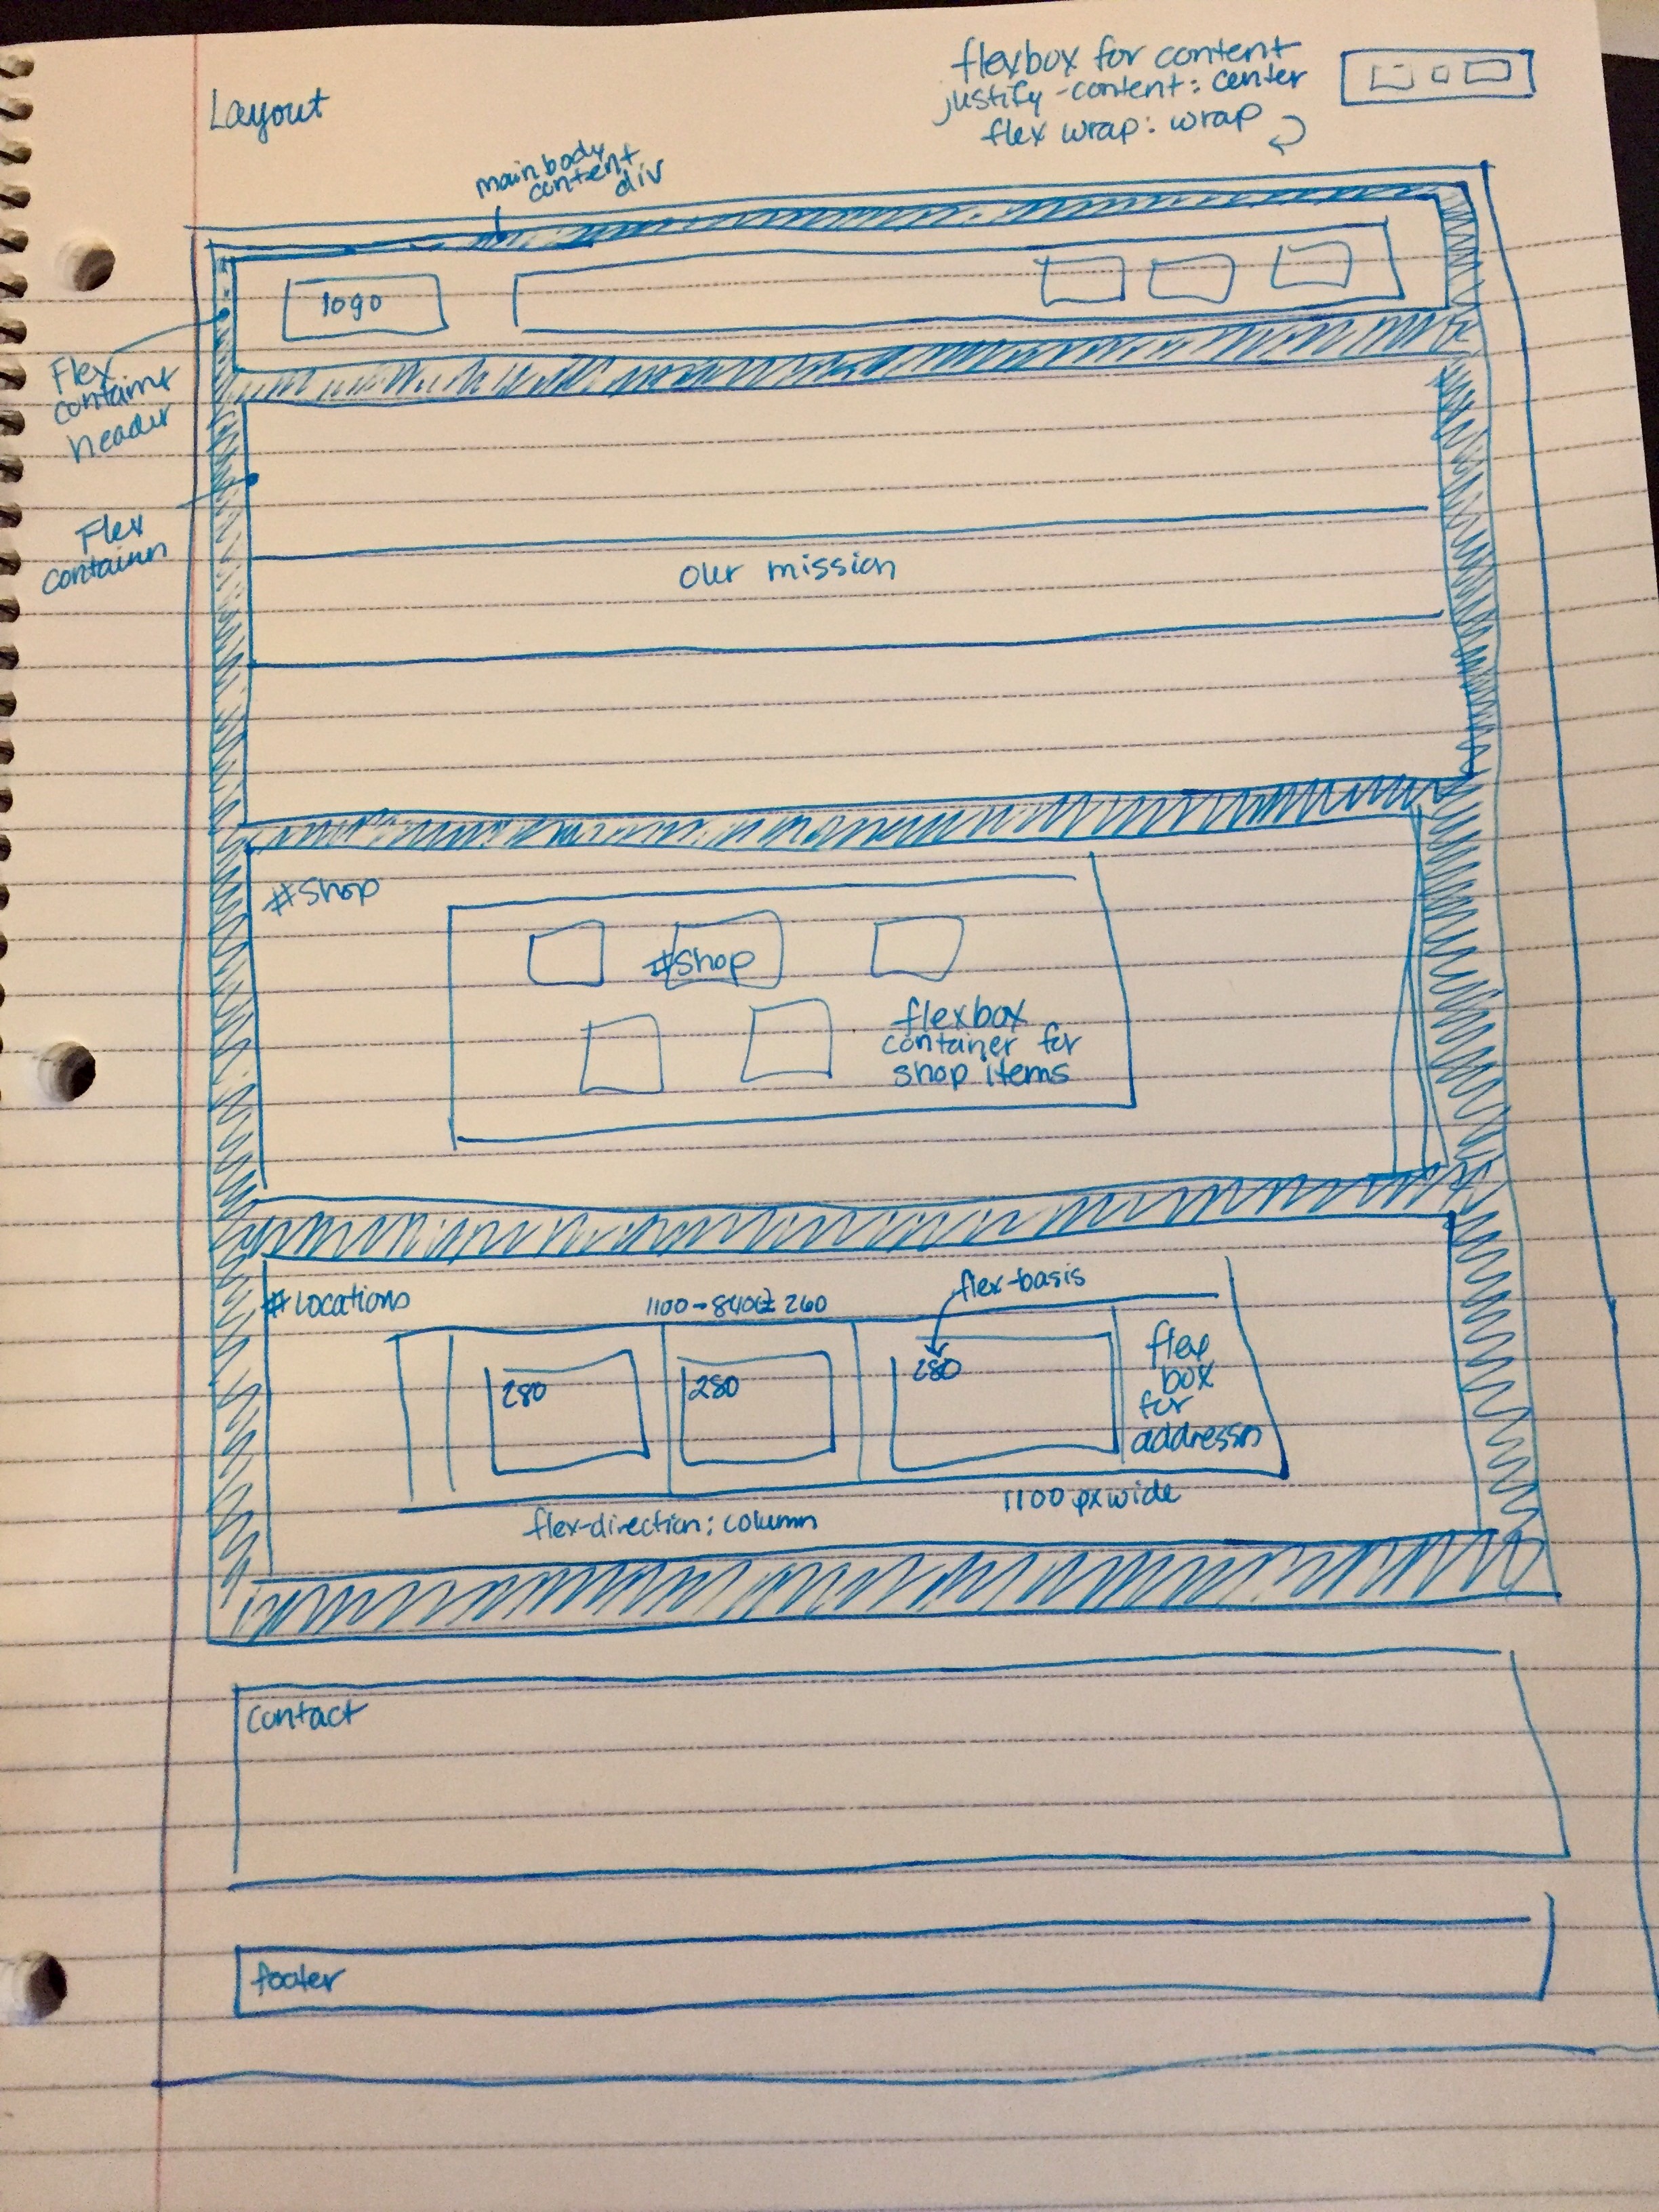 Layout
flexbox for content
justify-content: center
flex wrap: wrap
main body
content
div
logo
Flex
header
Flex
our mission
#Shop
#Shop
flexbox
container for
shop items
#Locations
1100-840 260
flex-basis
280
280
280
flex
box
for
1100 px wide
flex-direction: column
contact
footer